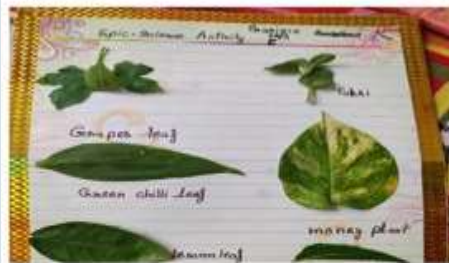 Topic-Science Activity
Tulsi
Grapes leaf
Green chilli leaf
money plant
Lemon leaf